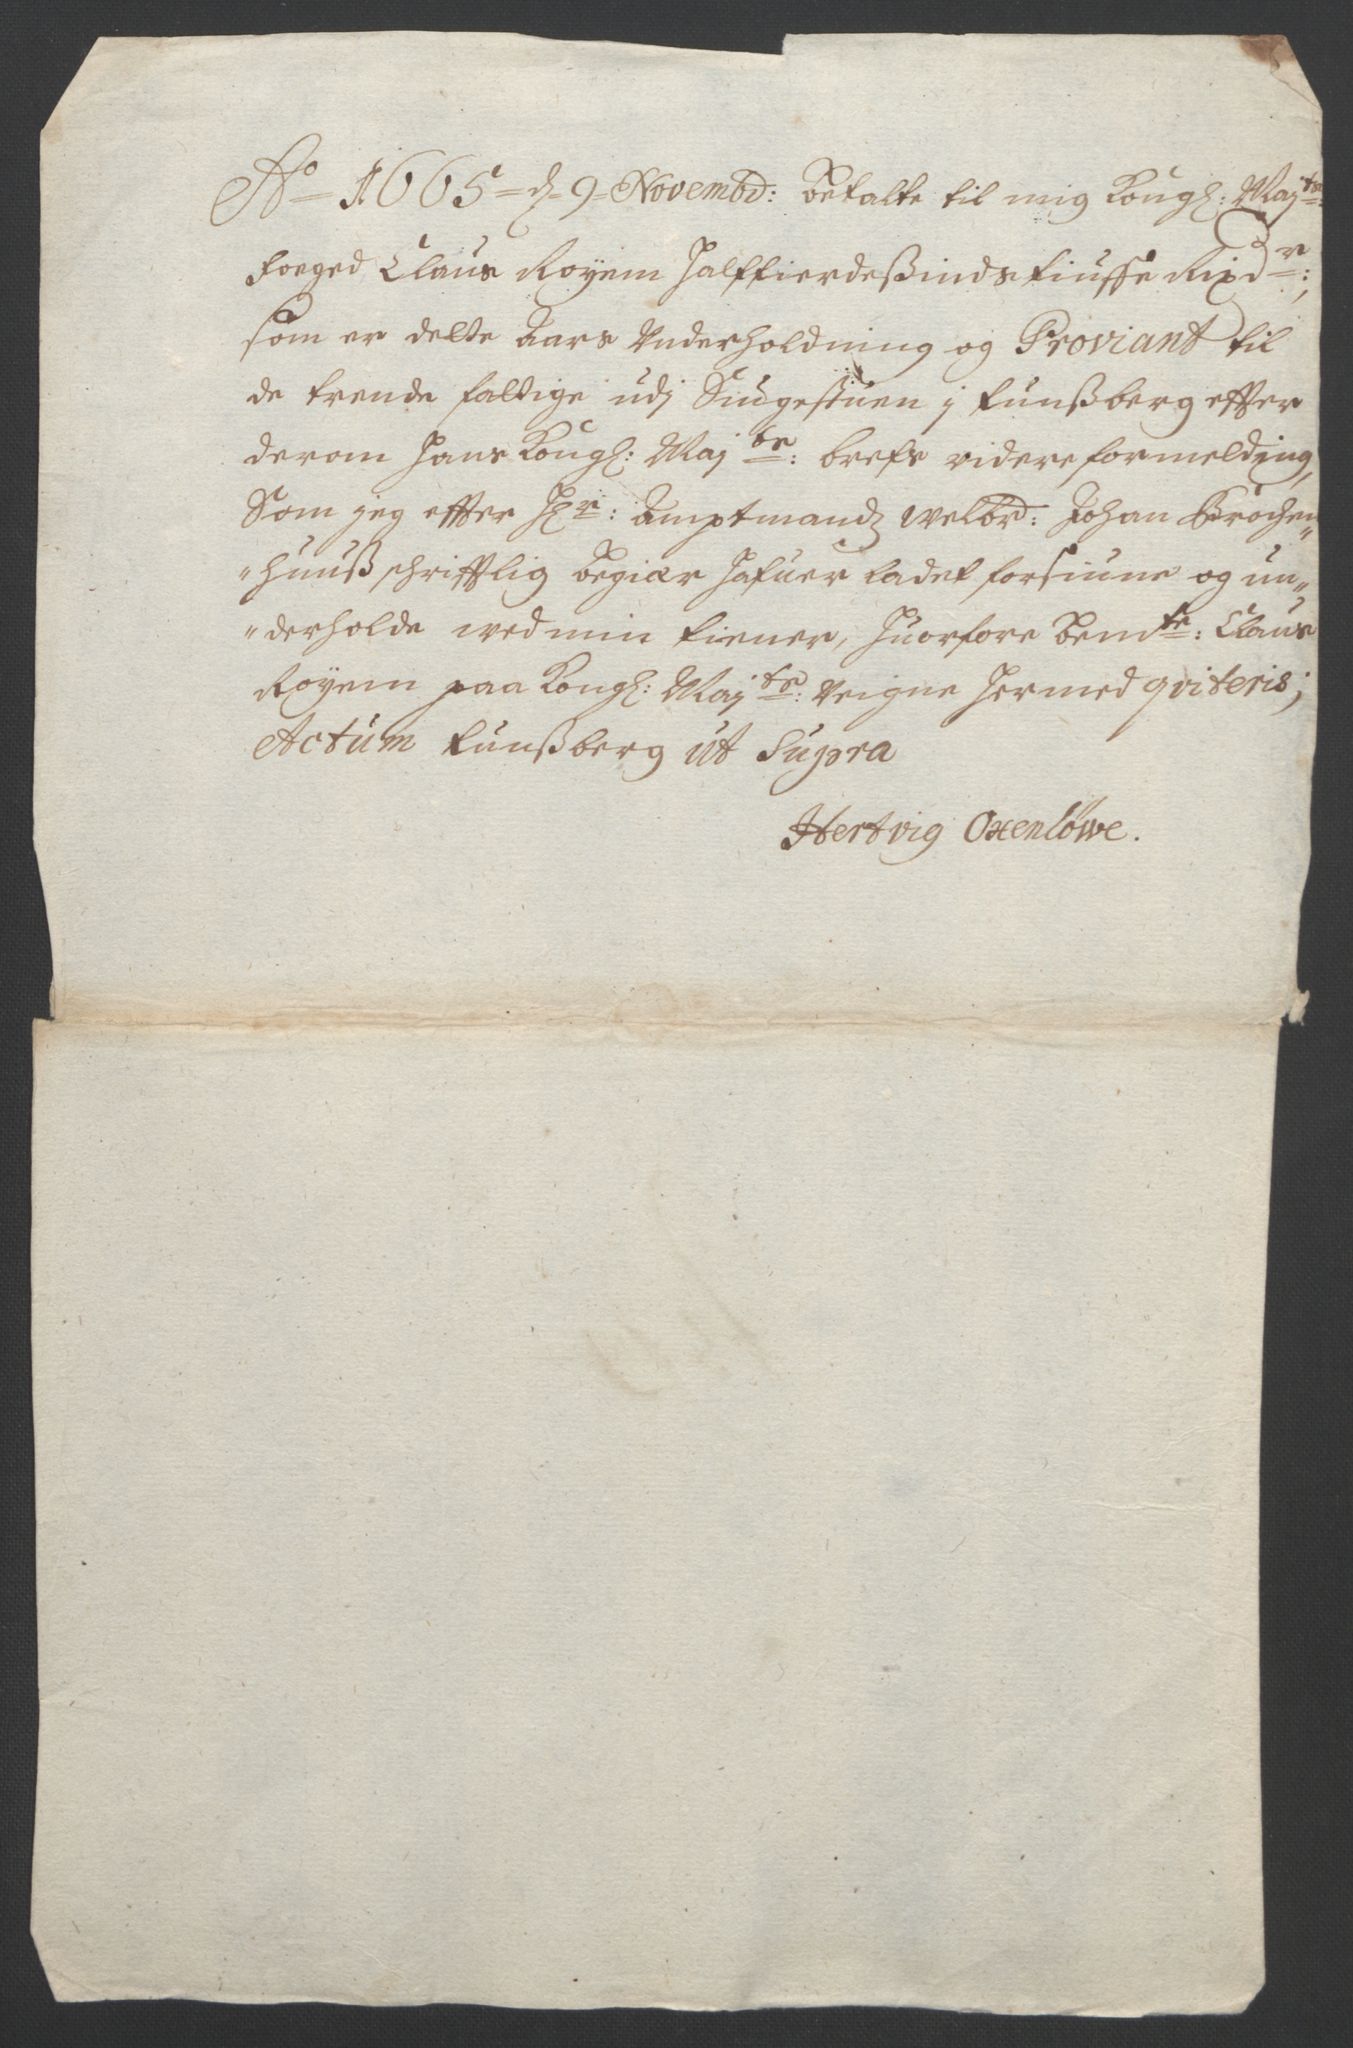 Ao 1665 d 9 Novembr: betalte til mig Kongl: Majts:
foeged Claus Royem halffierdesindstiuffe Rixdr:,
som er dette Aars Underholdning og Proviant til
de trende fattige udj Siugestuen j Tunßberg effter
derom hans Kongl: Majts: brefs videre formelding,
Som jeg effter Hr: Amptmandz welbr: Johan Brochen„
„huuß schrifftlig begiær hafuer ladet forsiune og un„
„derholde ved min tiener, huorfore bemte: Claus
Royem paa Kongl: Majts: Veigne hermed qviteris;
Actum Tunßberg ut Supra
Hertvig Oxenlöwe.